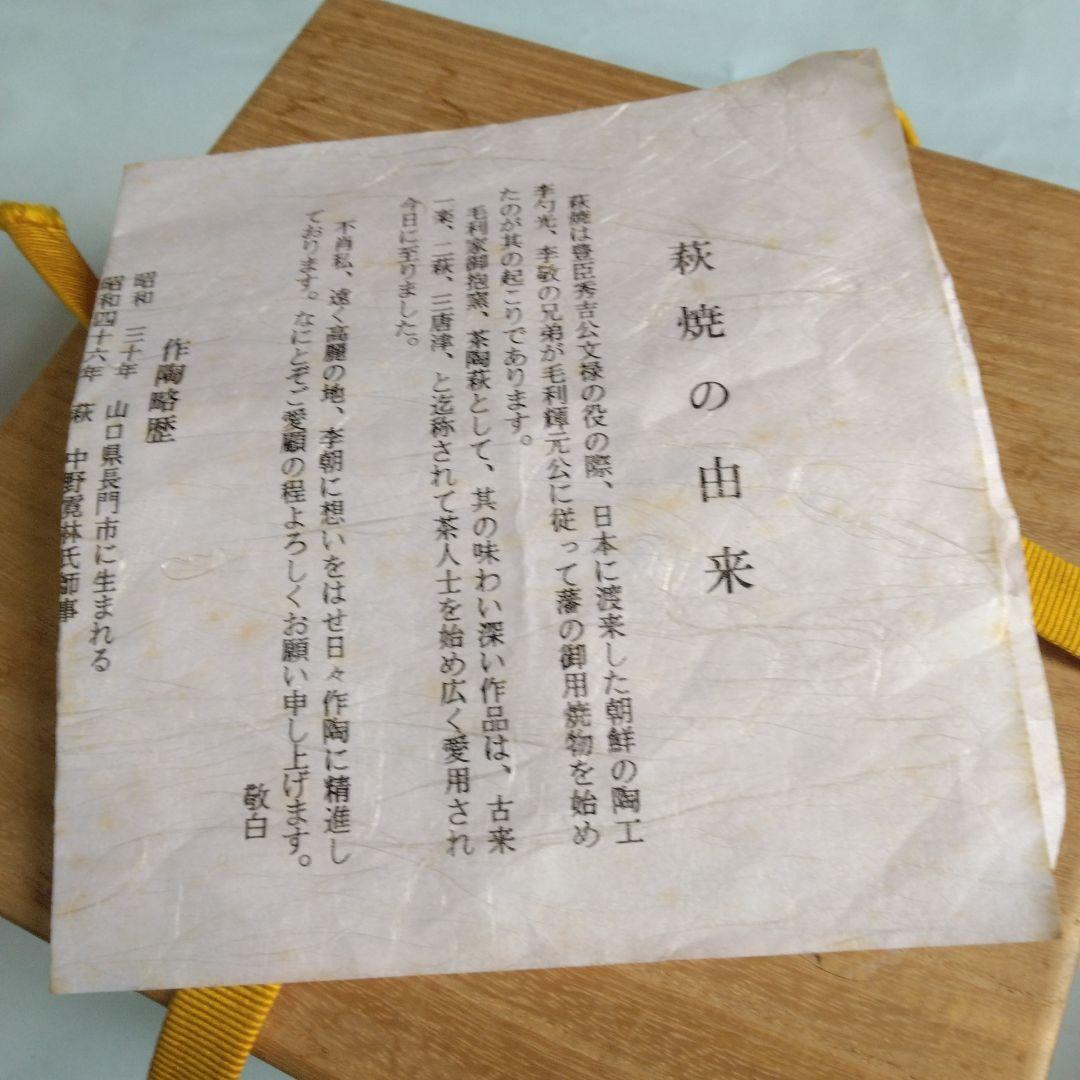 萩焼の由来
萩焼は豊臣秀吉公文禄の役の際、日本に渡来した朝鮮の陶工
李勺光、李敬の兄弟が毛利輝元公に従って藩の御用焼物を始め
たのが其の起こりであります。
毛利家御抱窯、茶陶萩として、其の味わい深い作品は、古来
一楽、二萩、三唐津、と迄称されて茶人士を始め広く愛用され
今日に至りました。
不肖私、遠く高麗の地、李朝に想いをはせ日々作陶に精進し
ております。なにとぞご愛顧の程よろしくお願い申し上げます。
敬白
作陶略歴
昭和 三十年 山口県長門市に生まれる
昭和四十六年 萩 中野霓林氏師事